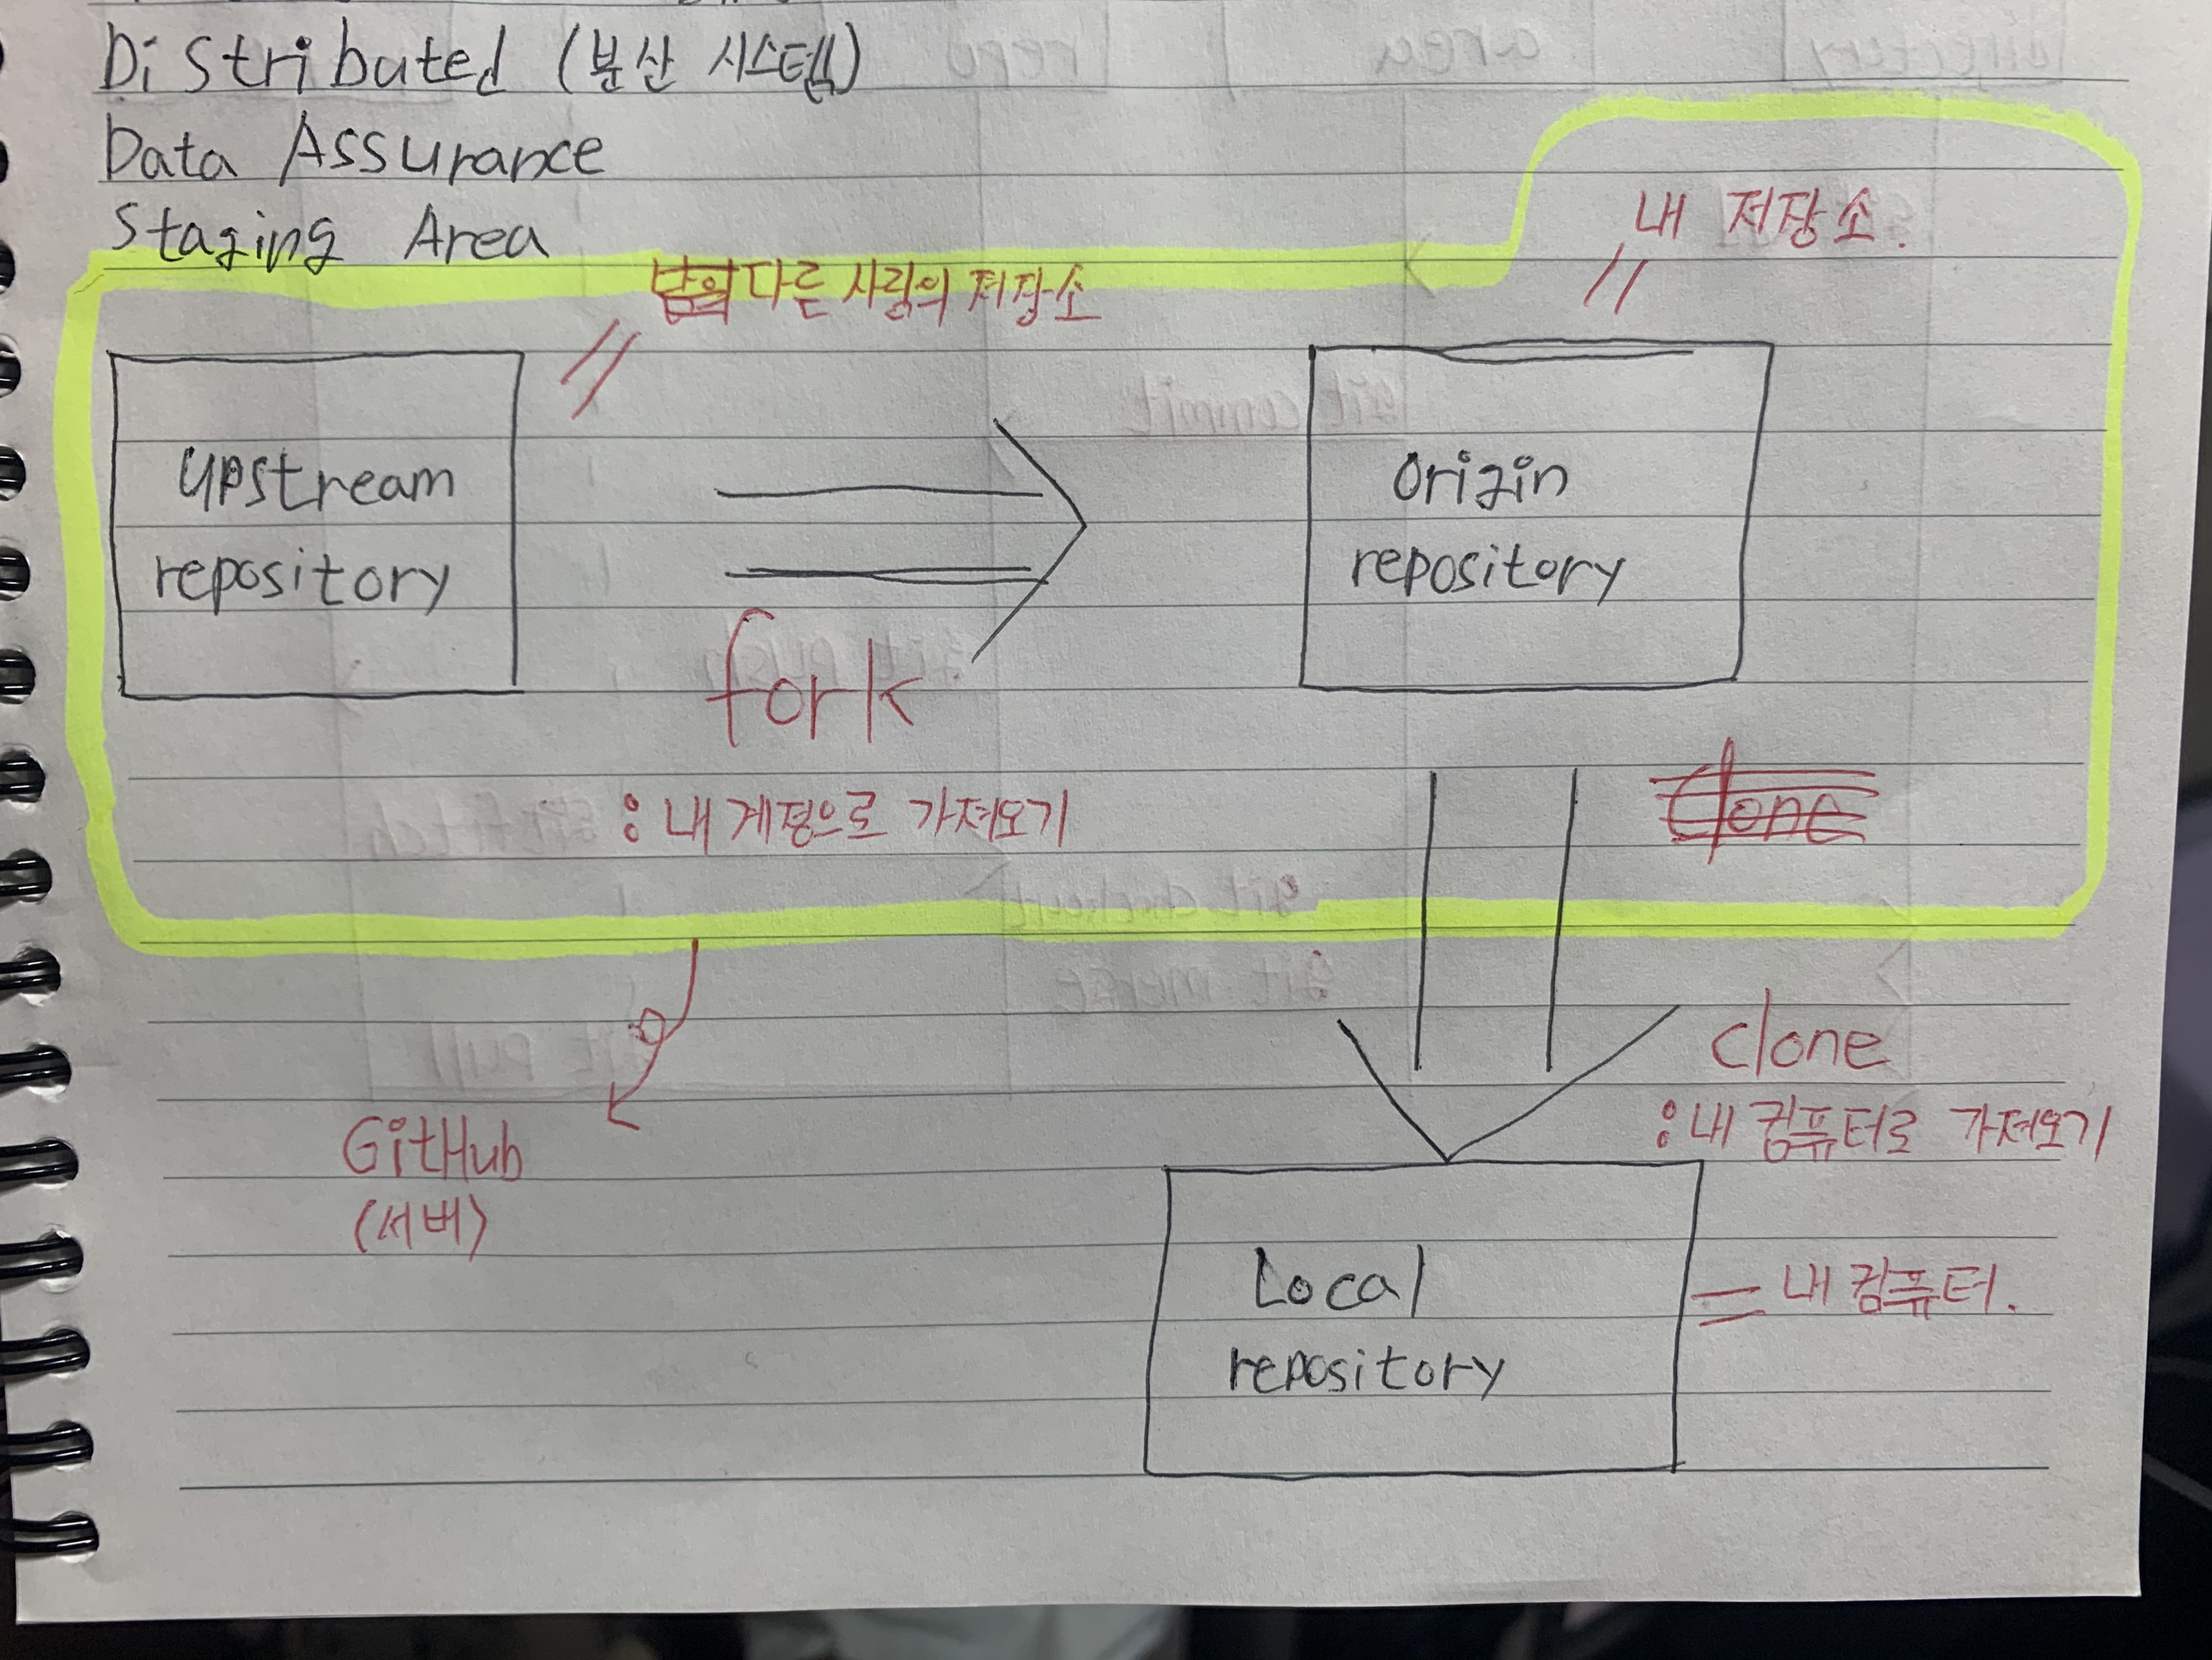 Distributed (분산 시스템)
Data Assurance
Staging Area
내 저장소.
다른 사람의 저장소
upstream
repository
Origin
repository
fork
: 내 계정으로 가져오기
clone
clone
: 내 컴퓨터로 가져오기
GitHub
(서버)
Local
repository
= 내 컴퓨터.